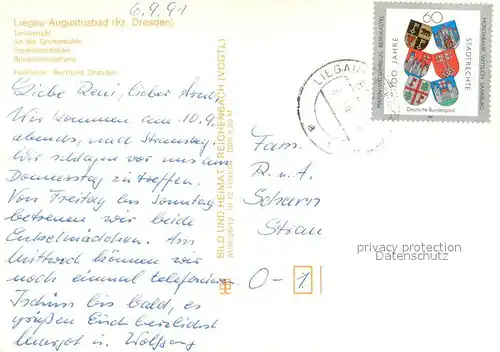 6.9.91
Liegau-Augustusbad (Kr. Dresden)
Teilansicht
An der Grundmühle
Forellenschänke
Fotofixfoto: Berthold, Dresden
Liebe Reni, lieber Arnd
Wir kommen am 10.9.
abends, nach Strausberg.
Wir schlagen vor uns am
Donnerstag zu treffen.
Von Freitag bis Sonntag
betreuen wir beide
Enkelmädchen. Am
Mittwoch können wir
noch einmal telefonieren.
Tschüss bis bald, es
grüßen Euch herzlichst
u. Wolfgang
BILD UND HEIMAT REICHENBACH (VOGTL)
DDR 0,20 M
LIEGAU-
60
750 JAHRE
STADTRECHTE
MAYEN MONTABAUR WITTLICH SAARBURG
BERNKASTEL
Deutsche Bundespost
Fam.
R. u. A.
O-1
privacy protection
Datenschutz